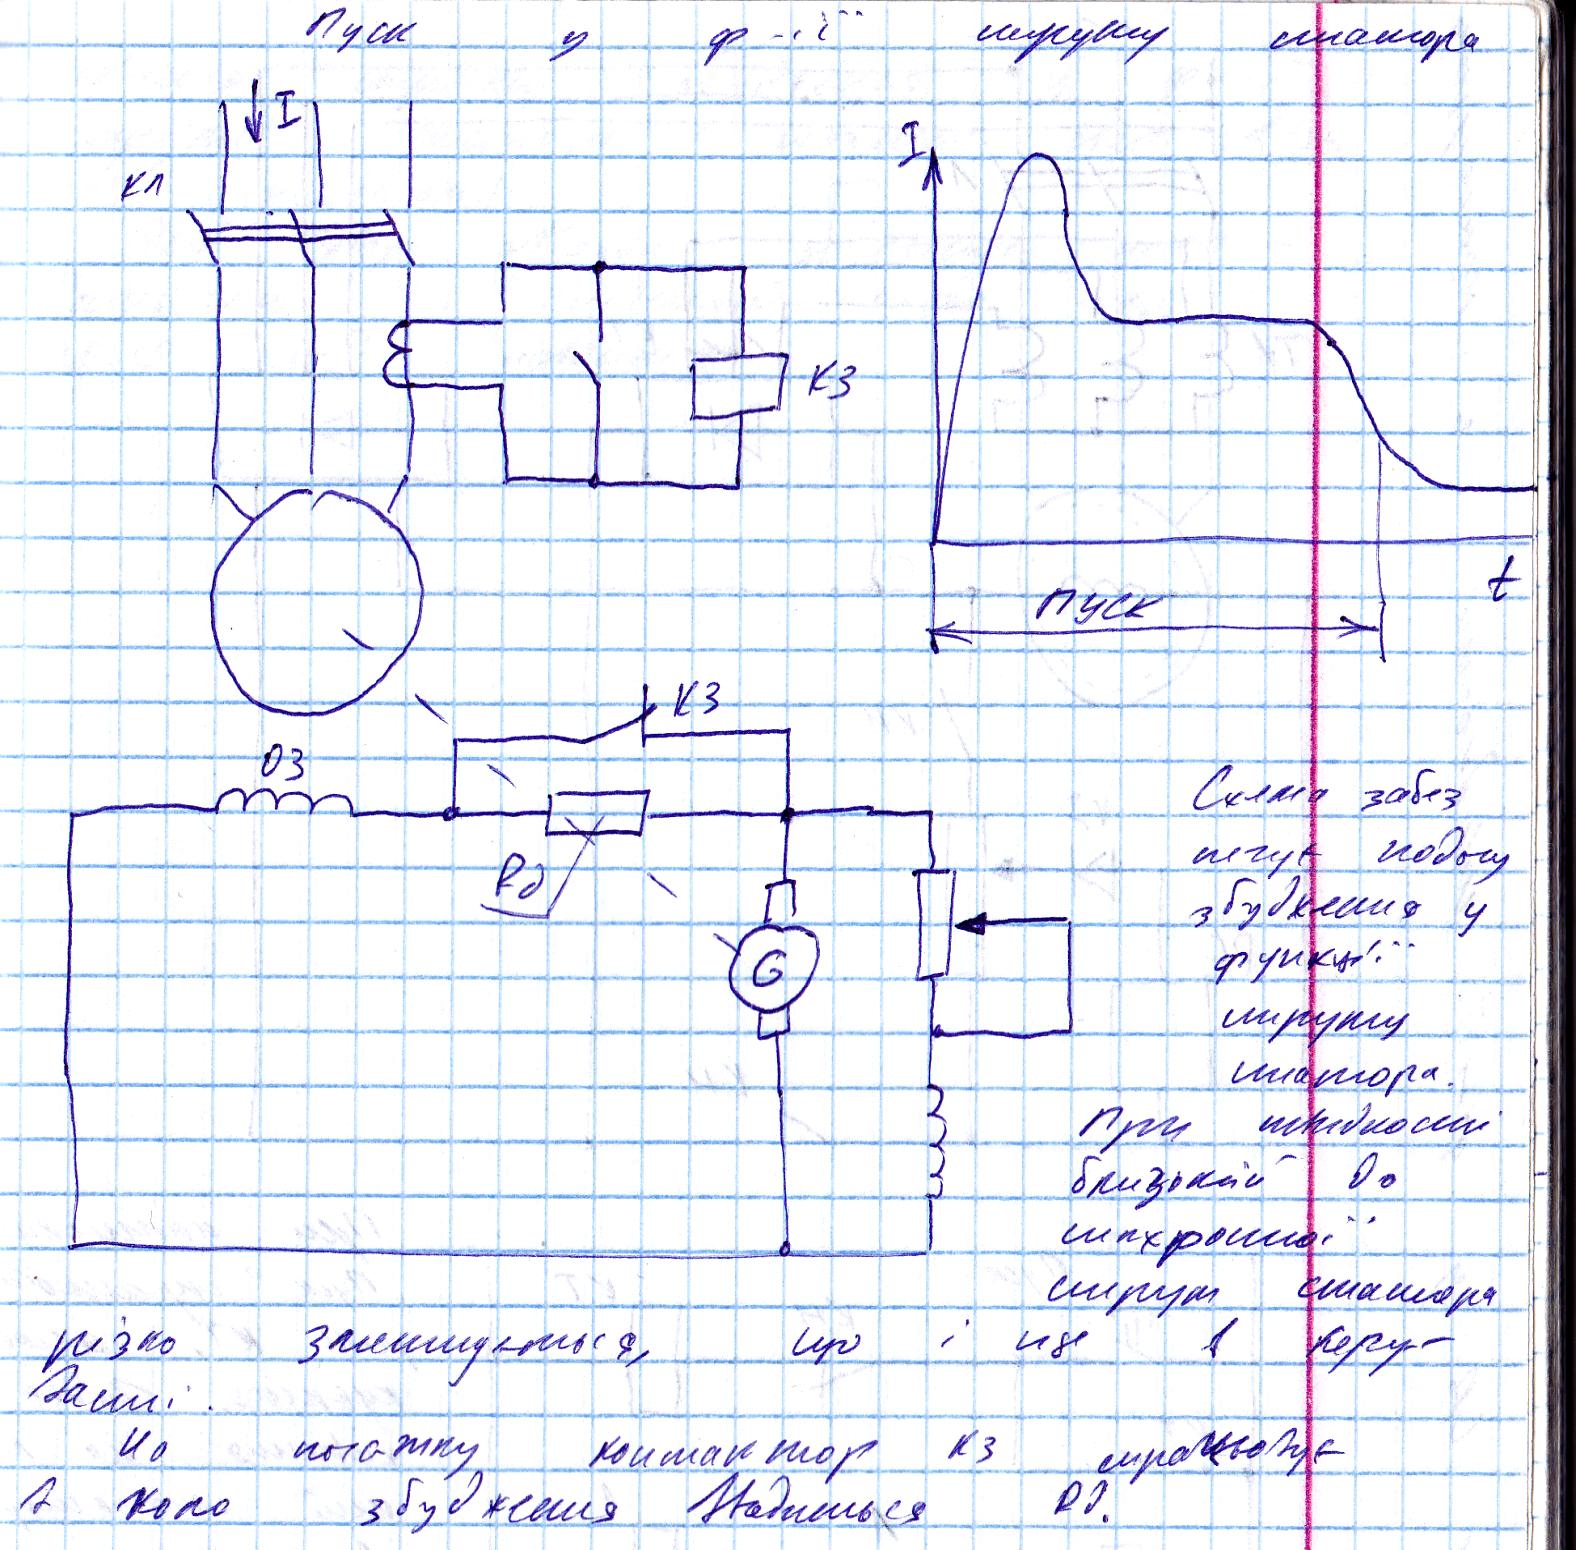 Пуск у ф-ії струму статора
I
КЛ
I
КЗ
t
ПУСК
КЗ
ОЗ
Rд
G
Схема забез
печує подачу
збудження у
функції
струму
статора.
При швидкості
близькій до
синхронної
струм статора
різко зменшується, що і це в керу-
ванні.
На початку контактор КЗ спрацьовує
в коло збудження вводиться Rд.